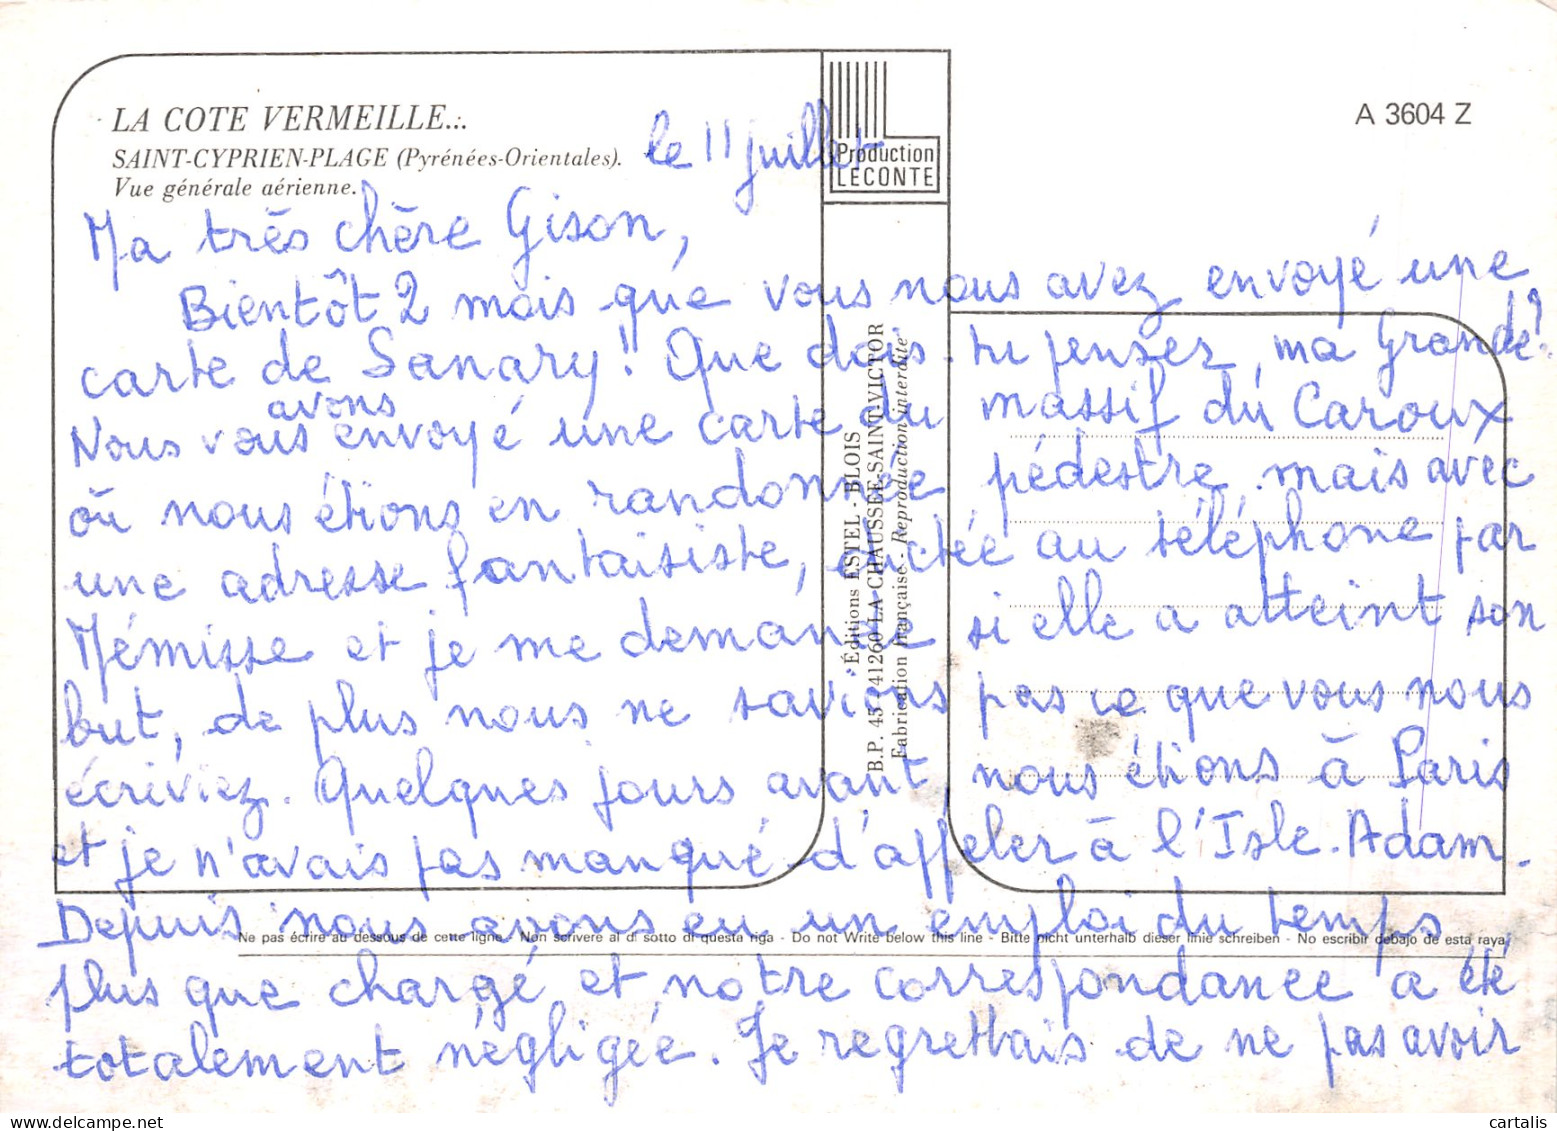 LA COTE VERMEILLE...
SAINT-CYPRIEN-PLAGE (Pyrénées-Orientales).
Vue générale aérienne.
Production
LECONTE
A 3604 Z
le 11 juillet
Ma très chère Gison,
Bientôt 2 mais que vous nous avez envoyé une
carte de Sanary! Que dois-tu penser, ma Grande?
Nous vous avons envoyé une carte du massif du Caroux
où nous étions en randonnée pédestre mais avec
une adresse fantaisiste, dictée au téléphone par
Mémisse et je me demande si elle a atteint son
but, de plus nous ne savions pas ce que vous nous
écriviez. Quelques jours avant, nous étions à Paris
et je n'avais pas manqué d'appeler à l'Isle-Adam.
Depuis nous avons eu un emploi du temps
plus que chargé et notre correspondance a été
totalement négligée. Je regrettais de ne pas avoir
Éditions ESTEL - BLOIS
B.P. 45 - 41260 LA-CHAUSSÉE-SAINT-VICTOR
Fabrication française - Reproduction interdite
Ne pas écrire au dessous de cette ligne - Non scrivere al di sotto di questa riga - Do not Write below this line - Bitte nicht unterhalb dieser linie schreiben - No escribir debajo de esta raya
cartalis